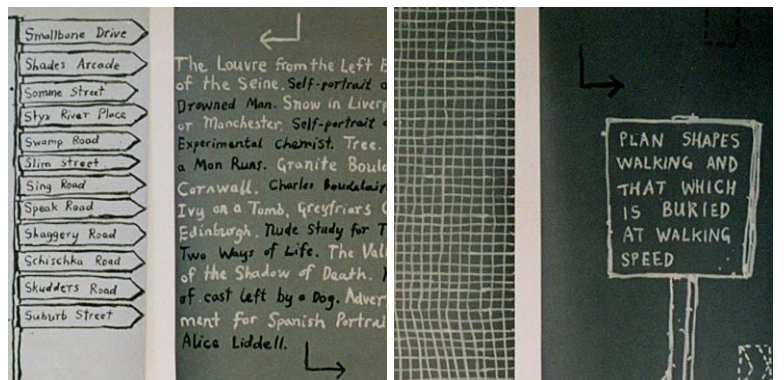 Smallbone Drive
Shades Arcade
Somme Street
Styx River Place
Swamp Road
Slim Street
Sing Road
Speak Road
Shaggery Road
Schischka Road
Skudders Road
Suburb Street
The Louvre from the Left B
of the Seine. Self-portrait
Drowned Man. Snow in Liverp
or Manchester. Self-portrait
Experimental Chemist. Tree.
a Man Runs. Granite Bould
Cornwall. Charles Baudelair
Ivy on a Tomb, Greyfriars C
Edinburgh. Nude Study for T
Two Ways of Life. The Val
of the Shadow of Death.
of cast left by a Dog. Adver
ment for Spanish Portrai
Alice Liddell.
PLAN SHAPES
WALKING AND
THAT WHICH
IS BURIED
AT WALKING
SPEED